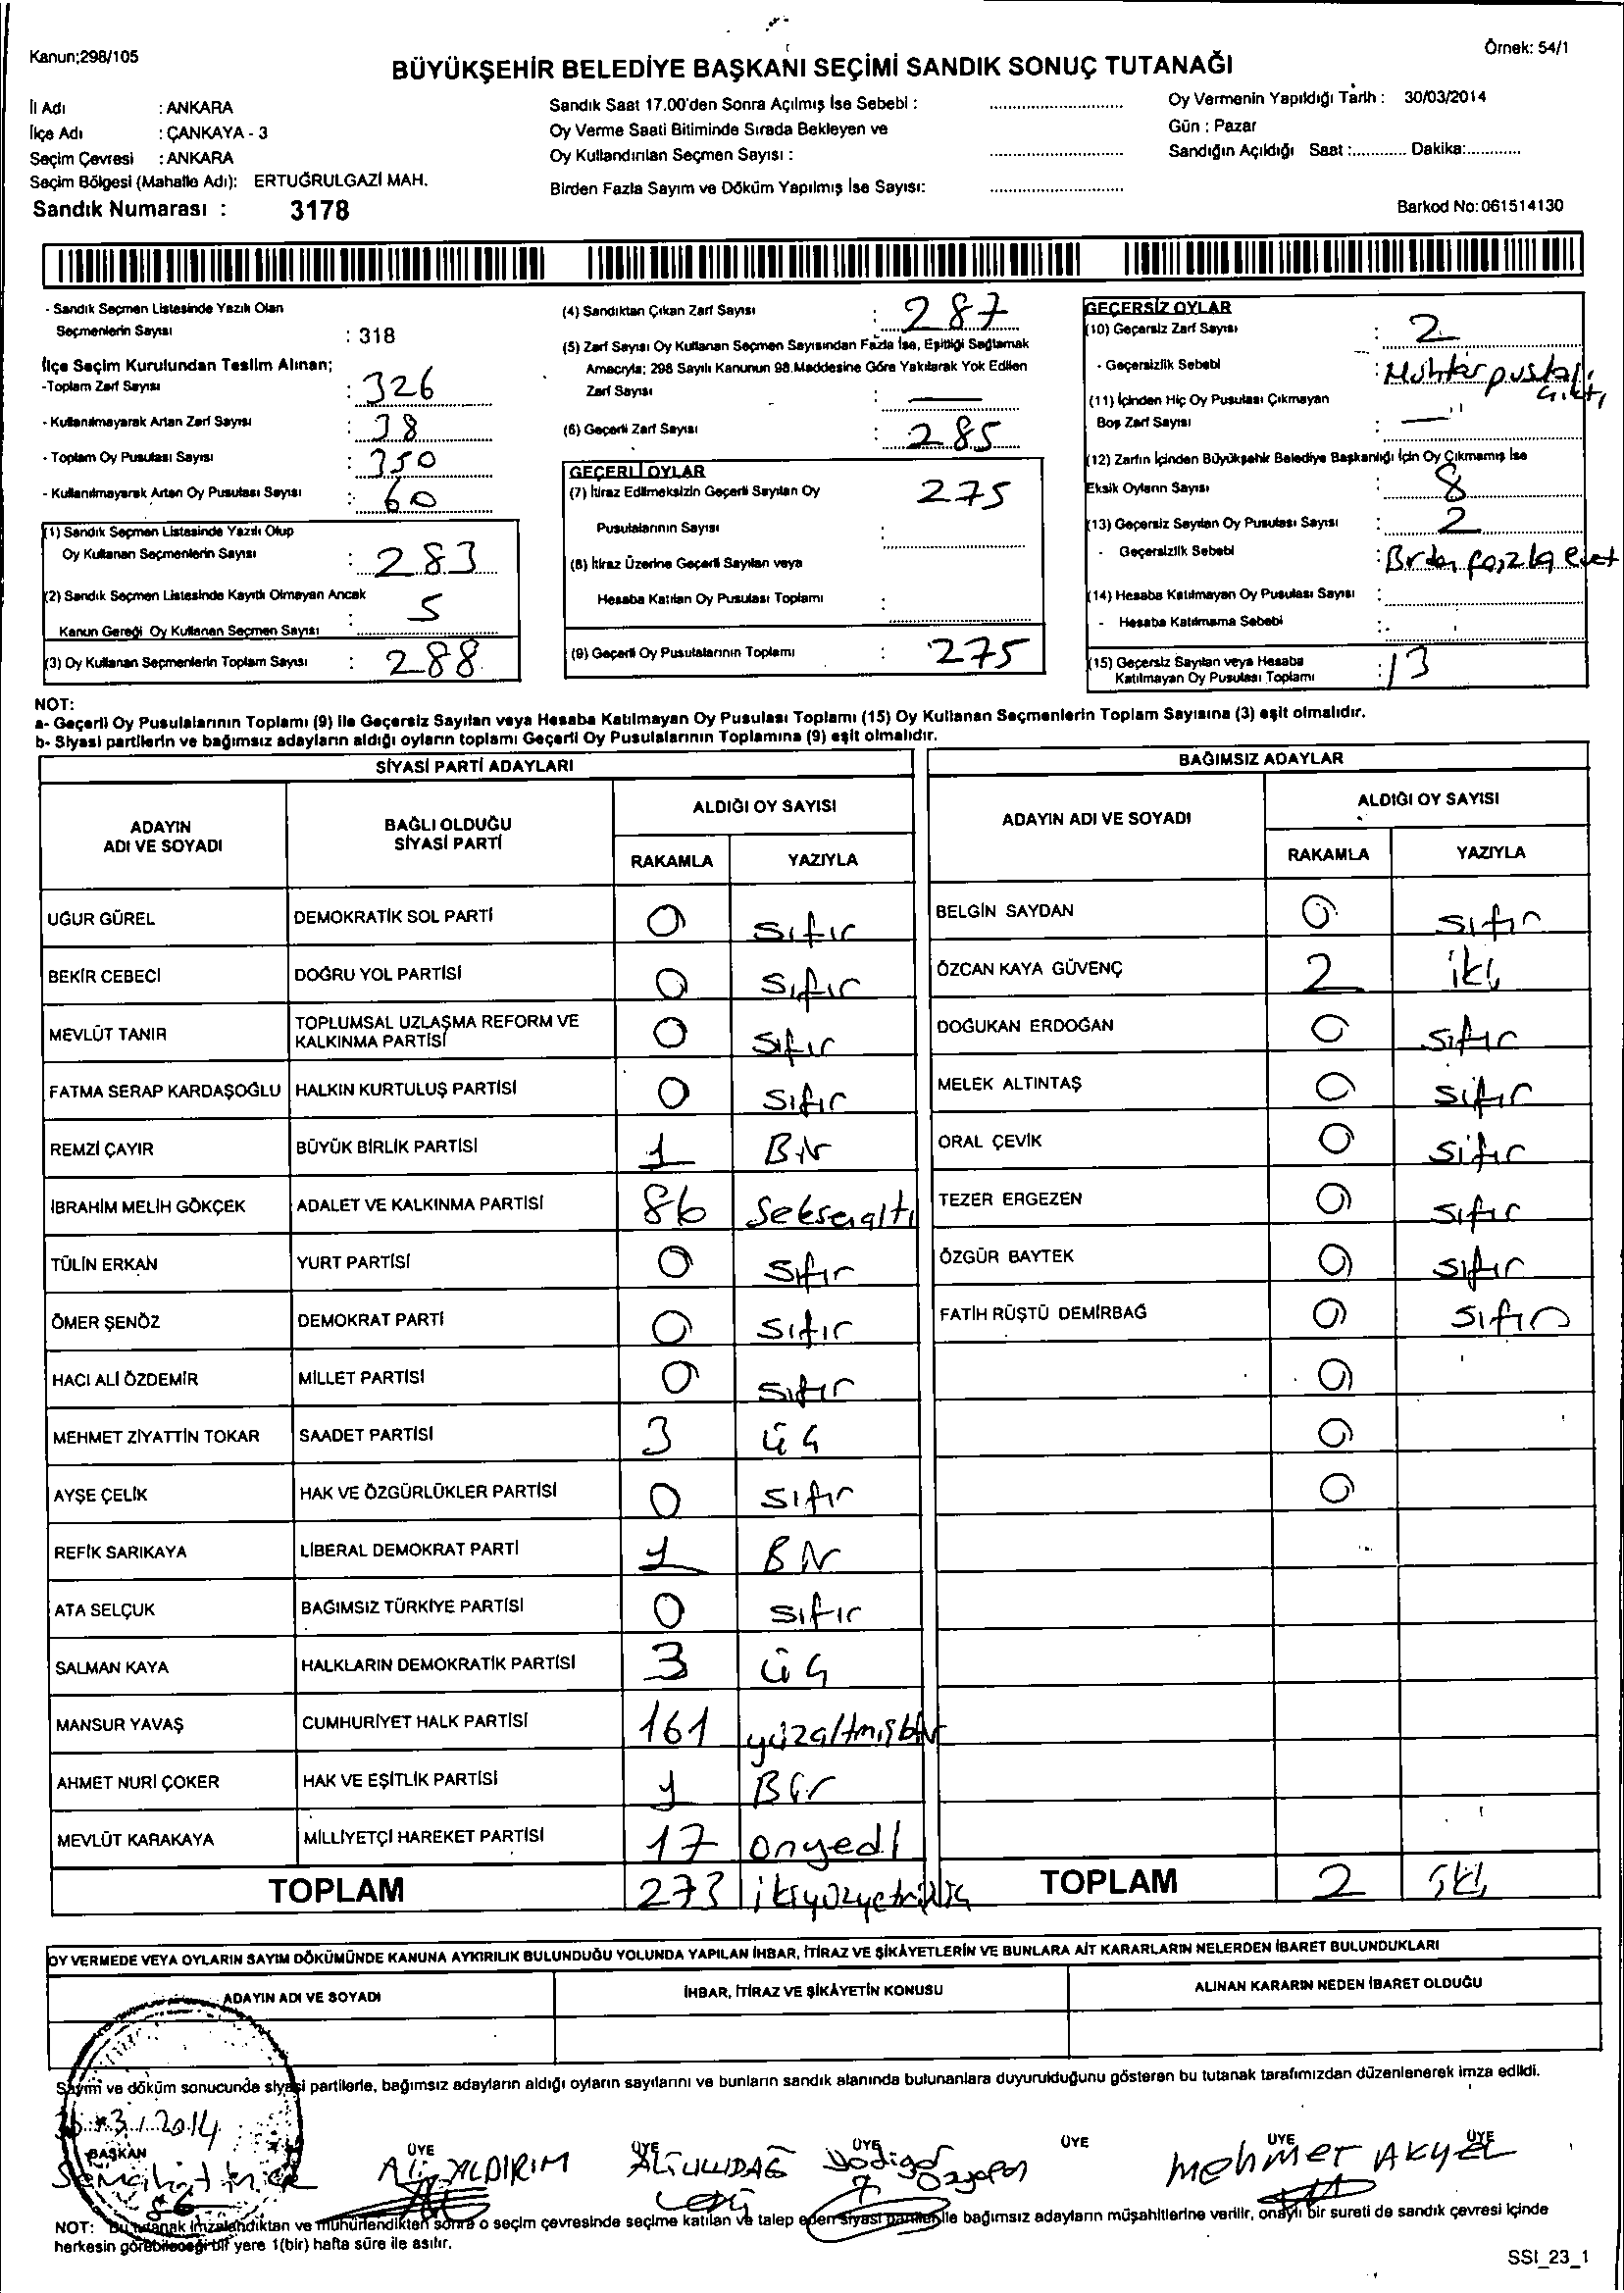 Kanun;298/105
Örnek: 54/1
BÜYÜKŞEHİR BELEDİYE BAŞKANI SEÇİMİ SANDIK SONUÇ TUTANAĞI
İl Adı : ANKARA
İlçe Adı : ÇANKAYA - 3
Seçim Çevresi : ANKARA
Seçim Bölgesi (Mahalle Adı): ERTUĞRULGAZİ MAH.
Sandık Numarası : 3178
Sandık Saat 17.00'den Sonra Açılmış İse Sebebi :
Oy Verme Saati Bitiminde Sırada Bekleyen ve
Oy Kullandırılan Seçmen Sayısı :
Birden Fazla Sayım ve Döküm Yapılmış İse Sayısı:
Oy Vermenin Yapıldığı Tarih : 30/03/2014
Gün : Pazar
Sandığın Açıldığı Saat :............ Dakika:............
Barkod No:061514130
- Sandık Seçmen Listesinde Yazılı Olan
Seçmenlerin Sayısı : 318
İlçe Seçim Kurulundan Teslim Alınan;
-Toplam Zarf Sayısı : 326
- Kullanılmayarak Artan Zarf Sayısı : 38
- Toplam Oy Pusulası Sayısı : 350
- Kullanılmayarak Artan Oy Pusulası Sayısı : 60
(1) Sandık Seçmen Listesinde Yazılı Olup
Oy Kullanan Seçmenlerin Sayısı : 283
(2) Sandık Seçmen Listesinde Kayıtlı Olmayan Ancak
Kanun Gereği Oy Kullanan Seçmen Sayısı : 5
(3) Oy Kullanan Seçmenlerin Toplam Sayısı : 288
(4) Sandıktan Çıkan Zarf Sayısı : 287
(5) Zarf Sayısı Oy Kullanan Seçmen Sayısından Fazla İse, Eşitliği Sağlamak
Amacıyla; 298 Sayılı Kanunun 98.Maddesine Göre Yakılarak Yok Edilen
Zarf Sayısı : —
(6) Geçerli Zarf Sayısı : 285
GEÇERLİ OYLAR
(7) İtiraz Edilmeksizin Geçerli Sayılan Oy 275
Pusulalarının Sayısı :
(8) İtiraz Üzerine Geçerli Sayılan veya
Hesaba Katılan Oy Pusulası Toplamı :
(9) Geçerli Oy Pusulalarının Toplamı : 275
GEÇERSİZ OYLAR
(10) Geçersiz Zarf Sayısı : 2
- Geçersizlik Sebebi : Muhtar pusulası çıktı
(11) İçinden Hiç Oy Pusulası Çıkmayan
Boş Zarf Sayısı : —
(12) Zarfın İçinden Büyükşehir Belediye Başkanlığı İçin Oy Çıkmamış İse
Eksik Oyların Sayısı : 8
(13) Geçersiz Sayılan Oy Pusulası Sayısı : 2
- Geçersizlik Sebebi : Birden fazla evet
(14) Hesaba Katılmayan Oy Pusulası Sayısı :
- Hesaba Katılmama Sebebi :
(15) Geçersiz Sayılan veya Hesaba
Katılmayan Oy Pusulası Toplamı : 13
NOT:
a- Geçerli Oy Pusulalarının Toplamı (9) ile Geçersiz Sayılan veya Hesaba Katılmayan Oy Pusulası Toplamı (15) Oy Kullanan Seçmenlerin Toplam Sayısına (3) eşit olmalıdır.
b- Siyasi partilerin ve bağımsız adayların aldığı oyların toplamı Geçerli Oy Pusulalarının Toplamına (9) eşit olmalıdır.
SİYASİ PARTİ ADAYLARI
ADAYIN ADI VE SOYADI
BAĞLI OLDUĞU SİYASİ PARTİ
ALDIĞI OY SAYISI
RAKAMLA YAZIYLA
UĞUR GÜREL DEMOKRATİK SOL PARTİ 0 sıfır
BEKİR CEBECİ DOĞRU YOL PARTİSİ 0 sıfır
MEVLÜT TANIR TOPLUMSAL UZLAŞMA REFORM VE KALKINMA PARTİSİ 0 sıfır
FATMA SERAP KARDAŞOĞLU HALKIN KURTULUŞ PARTİSİ 0 sıfır
REMZİ ÇAYIR BÜYÜK BİRLİK PARTİSİ 1 Bir
İBRAHİM MELİH GÖKÇEK ADALET VE KALKINMA PARTİSİ 86 Seksenaltı
TÜLİN ERKAN YURT PARTİSİ 0 sıfır
ÖMER ŞENÖZ DEMOKRAT PARTİ 0 sıfır
HACI ALİ ÖZDEMİR MİLLET PARTİSİ 0 sıfır
MEHMET ZİYATTİN TOKAR SAADET PARTİSİ 3 üç
AYŞE ÇELİK HAK VE ÖZGÜRLÜKLER PARTİSİ 0 sıfır
REFİK SARIKAYA LİBERAL DEMOKRAT PARTİ 1 Bir
ATA SELÇUK BAĞIMSIZ TÜRKİYE PARTİSİ 0 sıfır
SALMAN KAYA HALKLARIN DEMOKRATİK PARTİSİ 3 üç
MANSUR YAVAŞ CUMHURİYET HALK PARTİSİ 161 yüzaltmışbir
AHMET NURİ ÇOKER HAK VE EŞİTLİK PARTİSİ 1 Bir
MEVLÜT KARAKAYA MİLLİYETÇİ HAREKET PARTİSİ 17 onyedi
TOPLAM 273 ikiyüzyetmişüç
BAĞIMSIZ ADAYLAR
ADAYIN ADI VE SOYADI
ALDIĞI OY SAYISI
RAKAMLA YAZIYLA
BELGİN SAYDAN 0 sıfır
ÖZCAN KAYA GÜVENÇ 2 iki
DOĞUKAN ERDOĞAN 0 sıfır
MELEK ALTINTAŞ 0 sıfır
ORAL ÇEVİK 0 sıfır
TEZER ERGEZEN 0 sıfır
ÖZGÜR BAYTEK 0 sıfır
FATİH RÜŞTÜ DEMİRBAĞ 0 sıfır
0
0
0
TOPLAM 2 iki
OY VERMEDE VEYA OYLARIN SAYIM DÖKÜMÜNDE KANUNA AYKIRILIK BULUNDUĞU YOLUNDA YAPILAN İHBAR, İTİRAZ VE ŞİKÂYETLERİN VE BUNLARA AİT KARARLARIN NELERDEN İBARET BULUNDUKLARI
ADAYIN ADI VE SOYADI
İHBAR, İTİRAZ VE ŞİKÂYETİN KONUSU
ALINAN KARARIN NEDEN İBARET OLDUĞU
Sayım ve döküm sonucunda siyasi partilerle, bağımsız adayların aldığı oyların sayılarını ve bunların sandık alanında bulunanlara duyurulduğunu gösteren bu tutanak tarafımızdan düzenlenerek imza edildi.
30.3.2014
BAŞKAN ÜYE ÜYE ÜYE ÜYE ÜYE ÜYE
ALİ YILDIRIM ALİ ULUDAĞ Mehmet AKYEL
NOT: Bu tutanak imzalandıktan ve mühürlendikten sonra o seçim çevresinde seçime katılan ve talep eden siyasi partiler ile bağımsız adayların müşahitlerine verilir, onaylı bir sureti de sandık çevresi içinde
herkesin görebileceği bir yere 1(bir) hafta süre ile asılır.
SSI_23_1